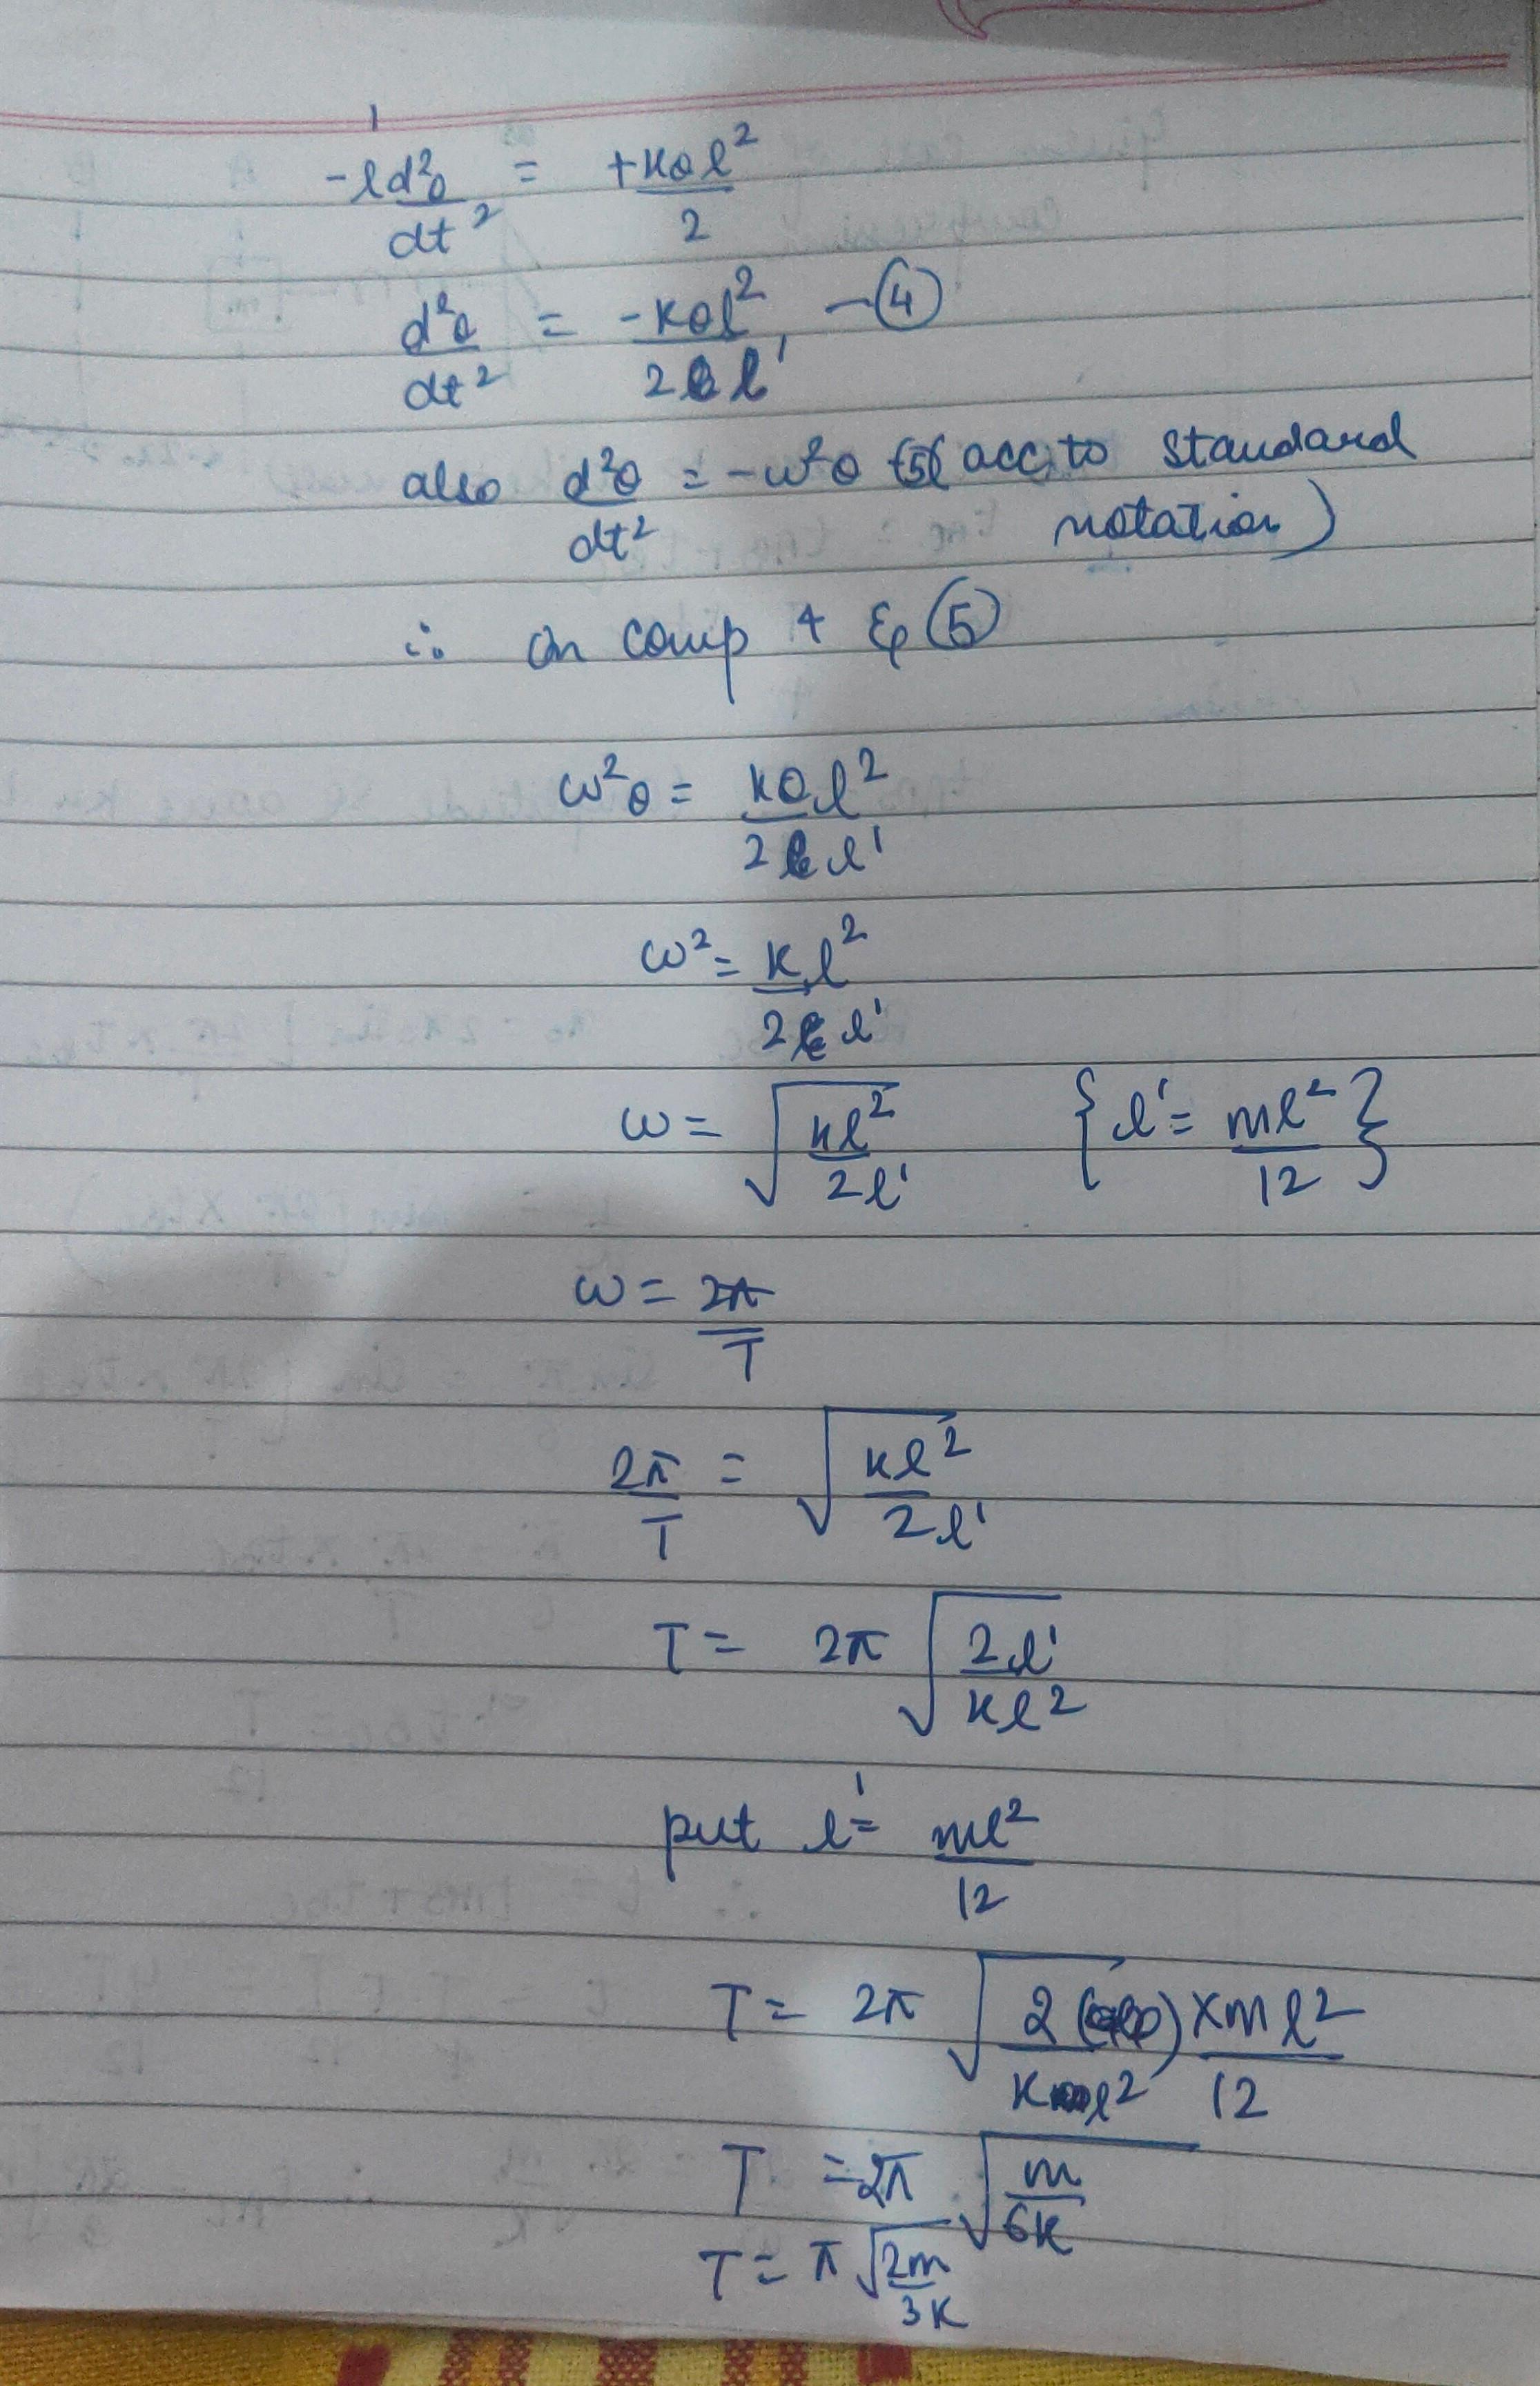 -l d²θ/dt² = +kθl²/2
d²θ/dt² = -kθl²/2l' -④
also d²θ/dt² = -ω²θ -⑤ (acc. to standard
notation)
∴ on comp 4 & ⑤
ω²θ = kθl²/2l'
ω² = kl²/2l'
ω = √(kl²/2l') {l' = ml²/12}
ω = 2π/T
2π/T = √(kl²/2l')
T = 2π √(2l'/kl²)
put l' = ml²/12
T = 2π √(2 × ml²/kl² 12)
T = 2π √(m/6k)
T = π √(2m/3k)